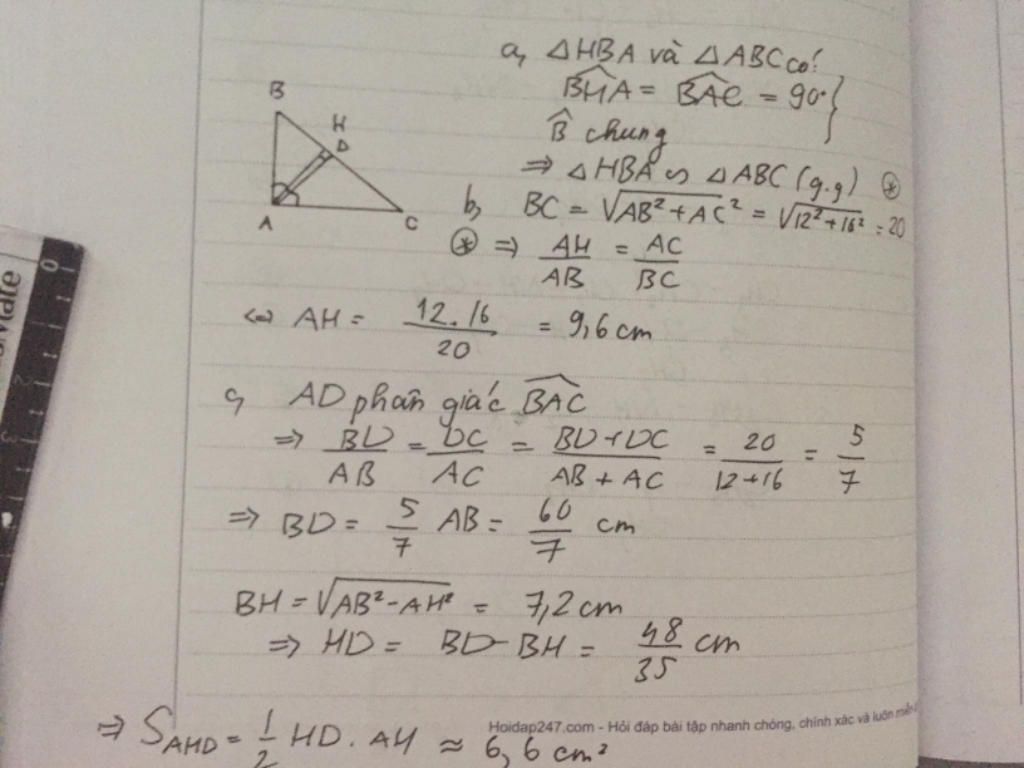 a, △HBA và △ABC có:
B̂HA = B̂AC = 90° }
B̂ chung
⇒ △HBA ∽ △ABC (g.g) ⊛
B
H
D
A
C
b, BC = √(AB² + AC²) = √(12² + 16²) = 20
⊛ ⇒ AH/AB = AC/BC
⇔ AH = 12.16/20 = 9,6 cm
c, AD phân giác B̂AC
⇒ BD/AB = DC/AC = BD+DC/AB+AC = 20/12+16 = 5/7
⇒ BD = 5/7 AB = 60/7 cm
BH = √(AB² - AH²) = 7,2 cm
⇒ HD = BD - BH = 48/35 cm
⇒ S_AHD = 1/2 HD. AH ≈ 6,6 cm²
Hoidap247.com - Hỏi đáp bài tập nhanh chóng, chính xác và luôn miễn
0
2
3